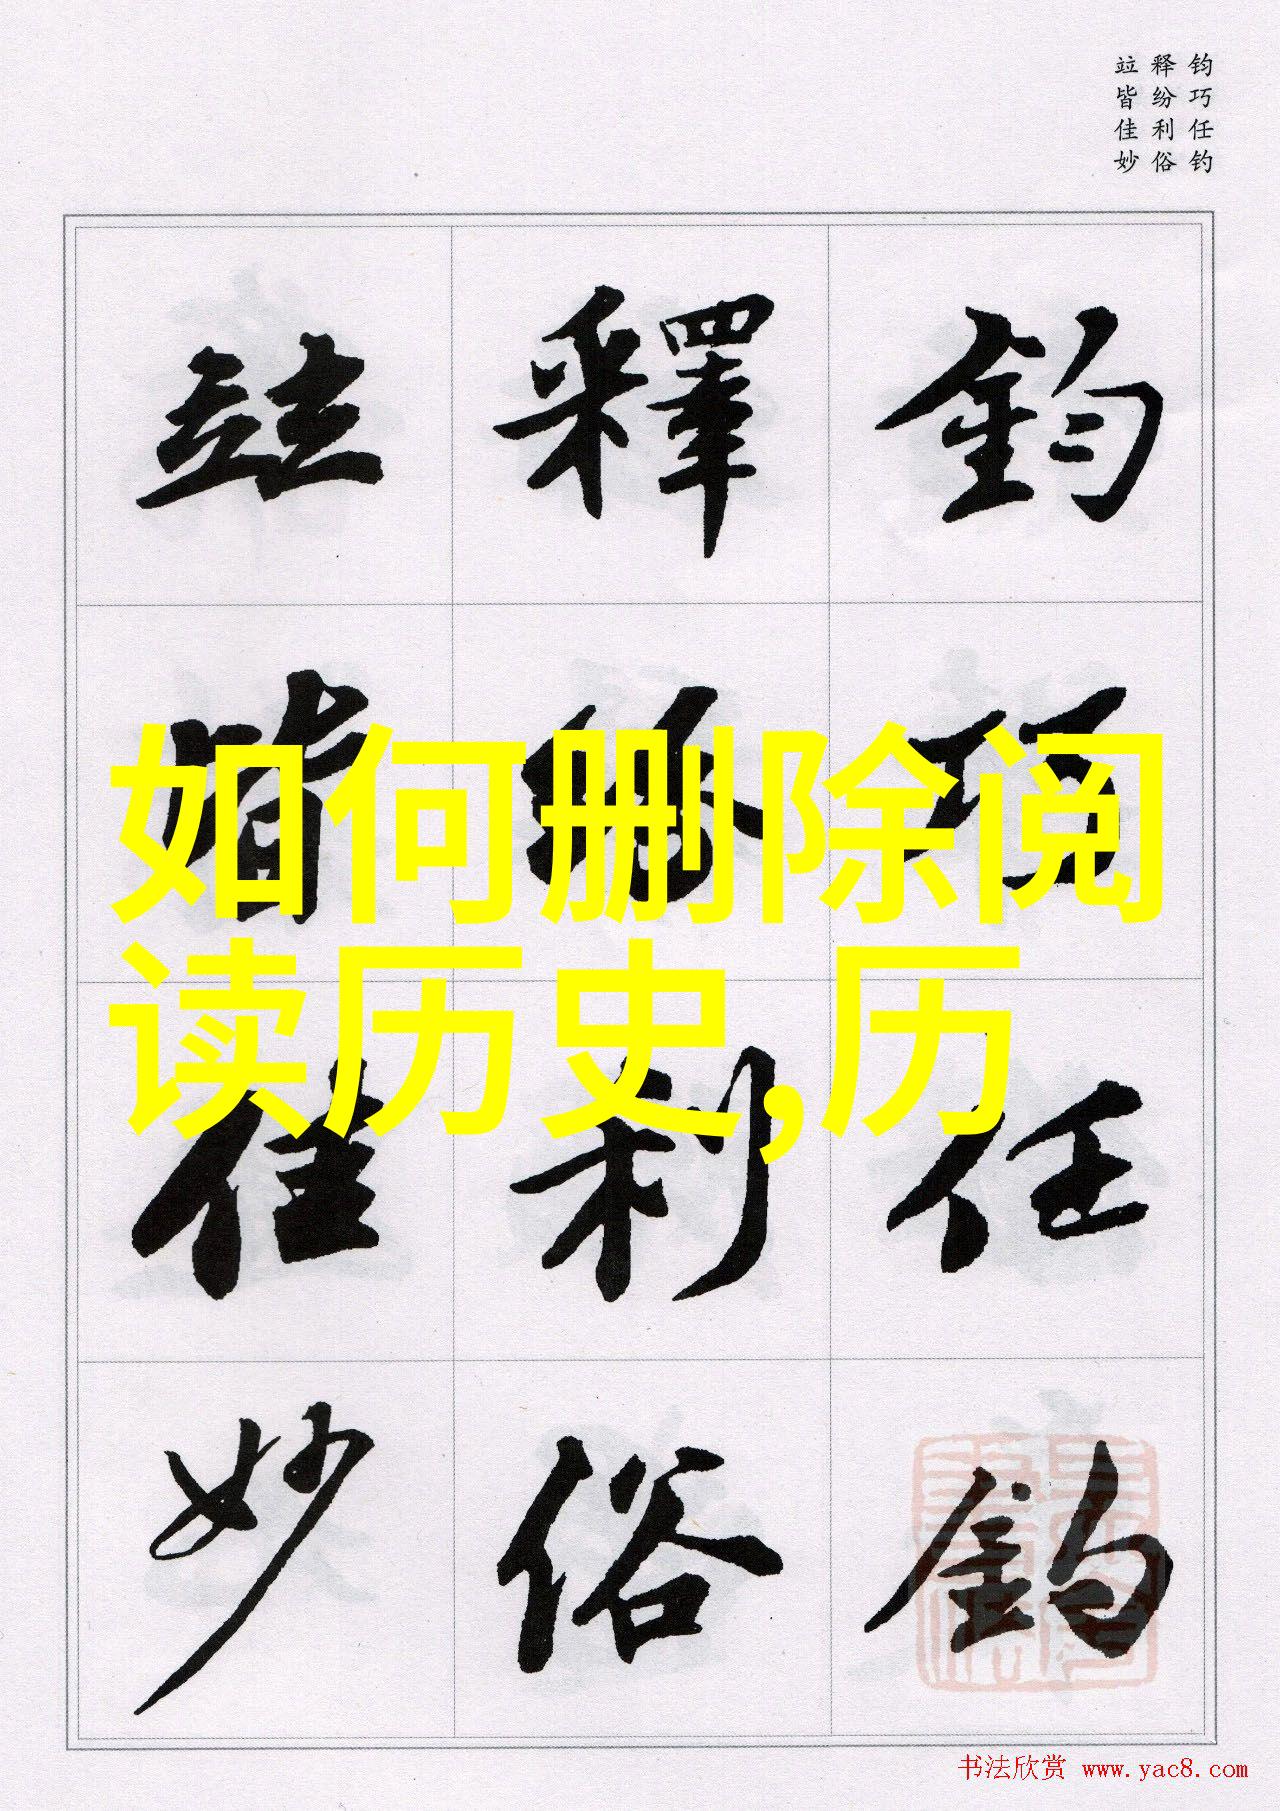 钧巧任钓
释纷利俗
竝皆佳妙
鈞巧任釣
釋紛利俗
竝皆佳妙
如何删除阅
读历史,历
书法欣赏 www.yac8.com